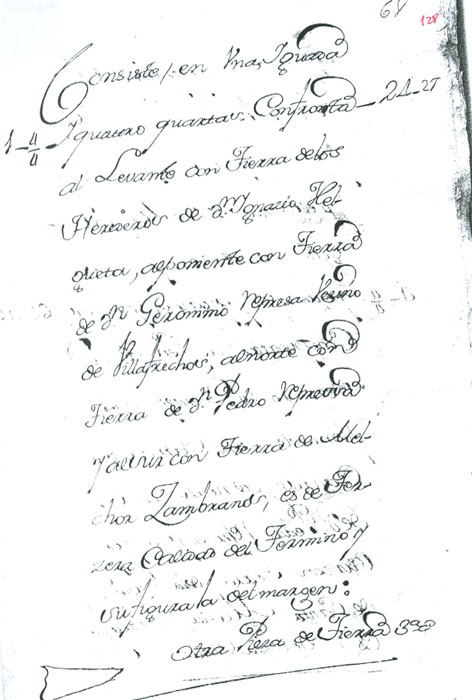 68 128
Consiste, en Una, Iguada
1-4/4 Iquatro quartas Confronta 21-27
al Levante con Tierra delos
Herederos de Dn Ignazio, Hel-
gueta, alponiente con Tierra
de Dn Geronimo Represa Vezino
de Villafrechos, alnorte con
Tierra de Dn Pedro Represa
Y alsur con Tierra de Mel-
chor Zambrano, es de Ter-
zera Calidad del Termino Y
sufigura la del margen:
otra Pieza de Tierra